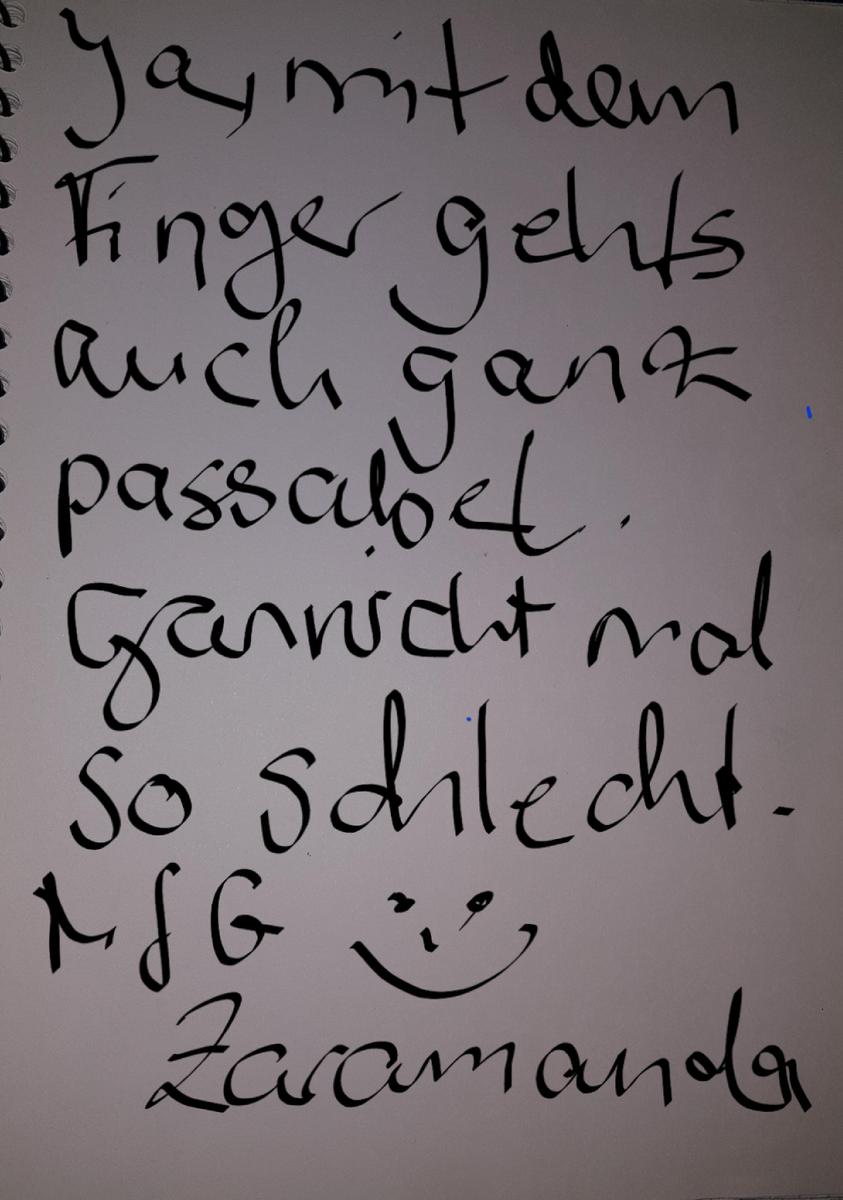 Ja, mit dem
Finger gehts
auch ganz
passabel.
Garnicht mal
so schlecht.
MfG
Zaramanda